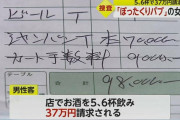 5、6杯で37万円請
捜査 「ぼったくりパブ」の女
ビール T
シャンパー T 本 70,000-
カード手数料 9,000-
テーブル
98,000-
男性客
店でお酒を5、6杯飲み
37万円請求される